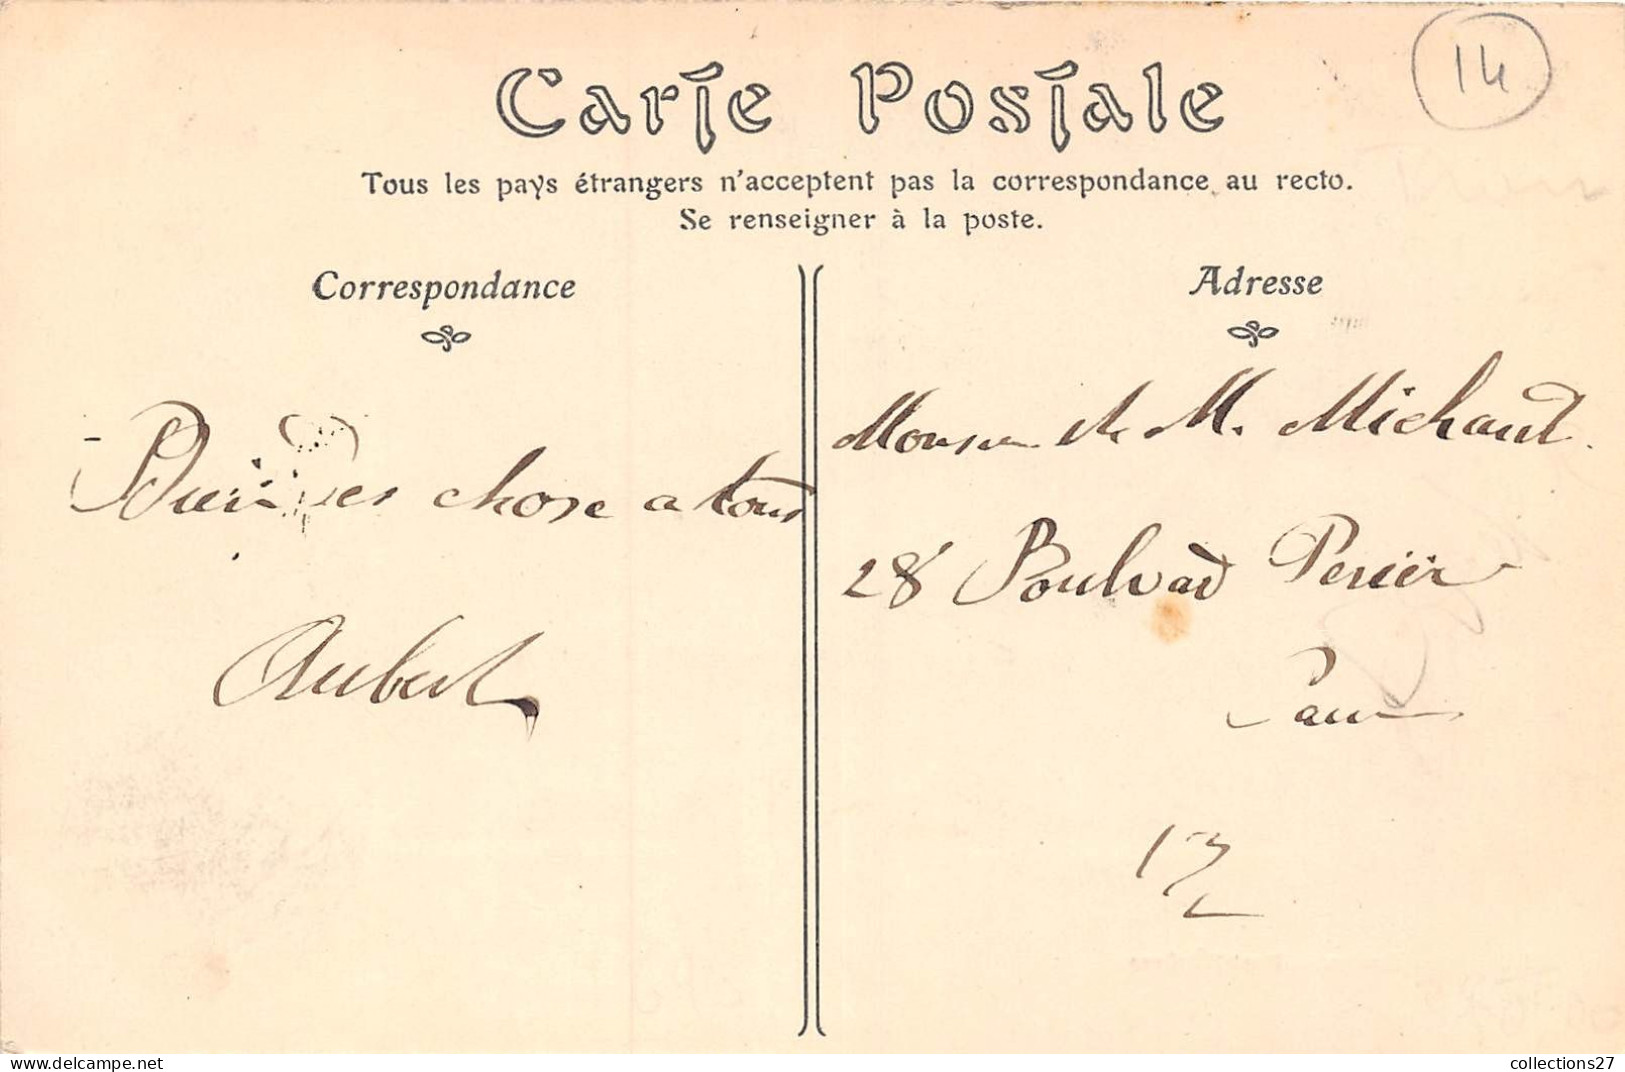 14
Carte Postale
Tous les pays étrangers n'acceptent pas la correspondance au recto.
Se renseigner à la poste.
Correspondance
chose a tous
Aubert
Adresse
M. Michaud
28 Boulvad Perier
Paris
13
collections27